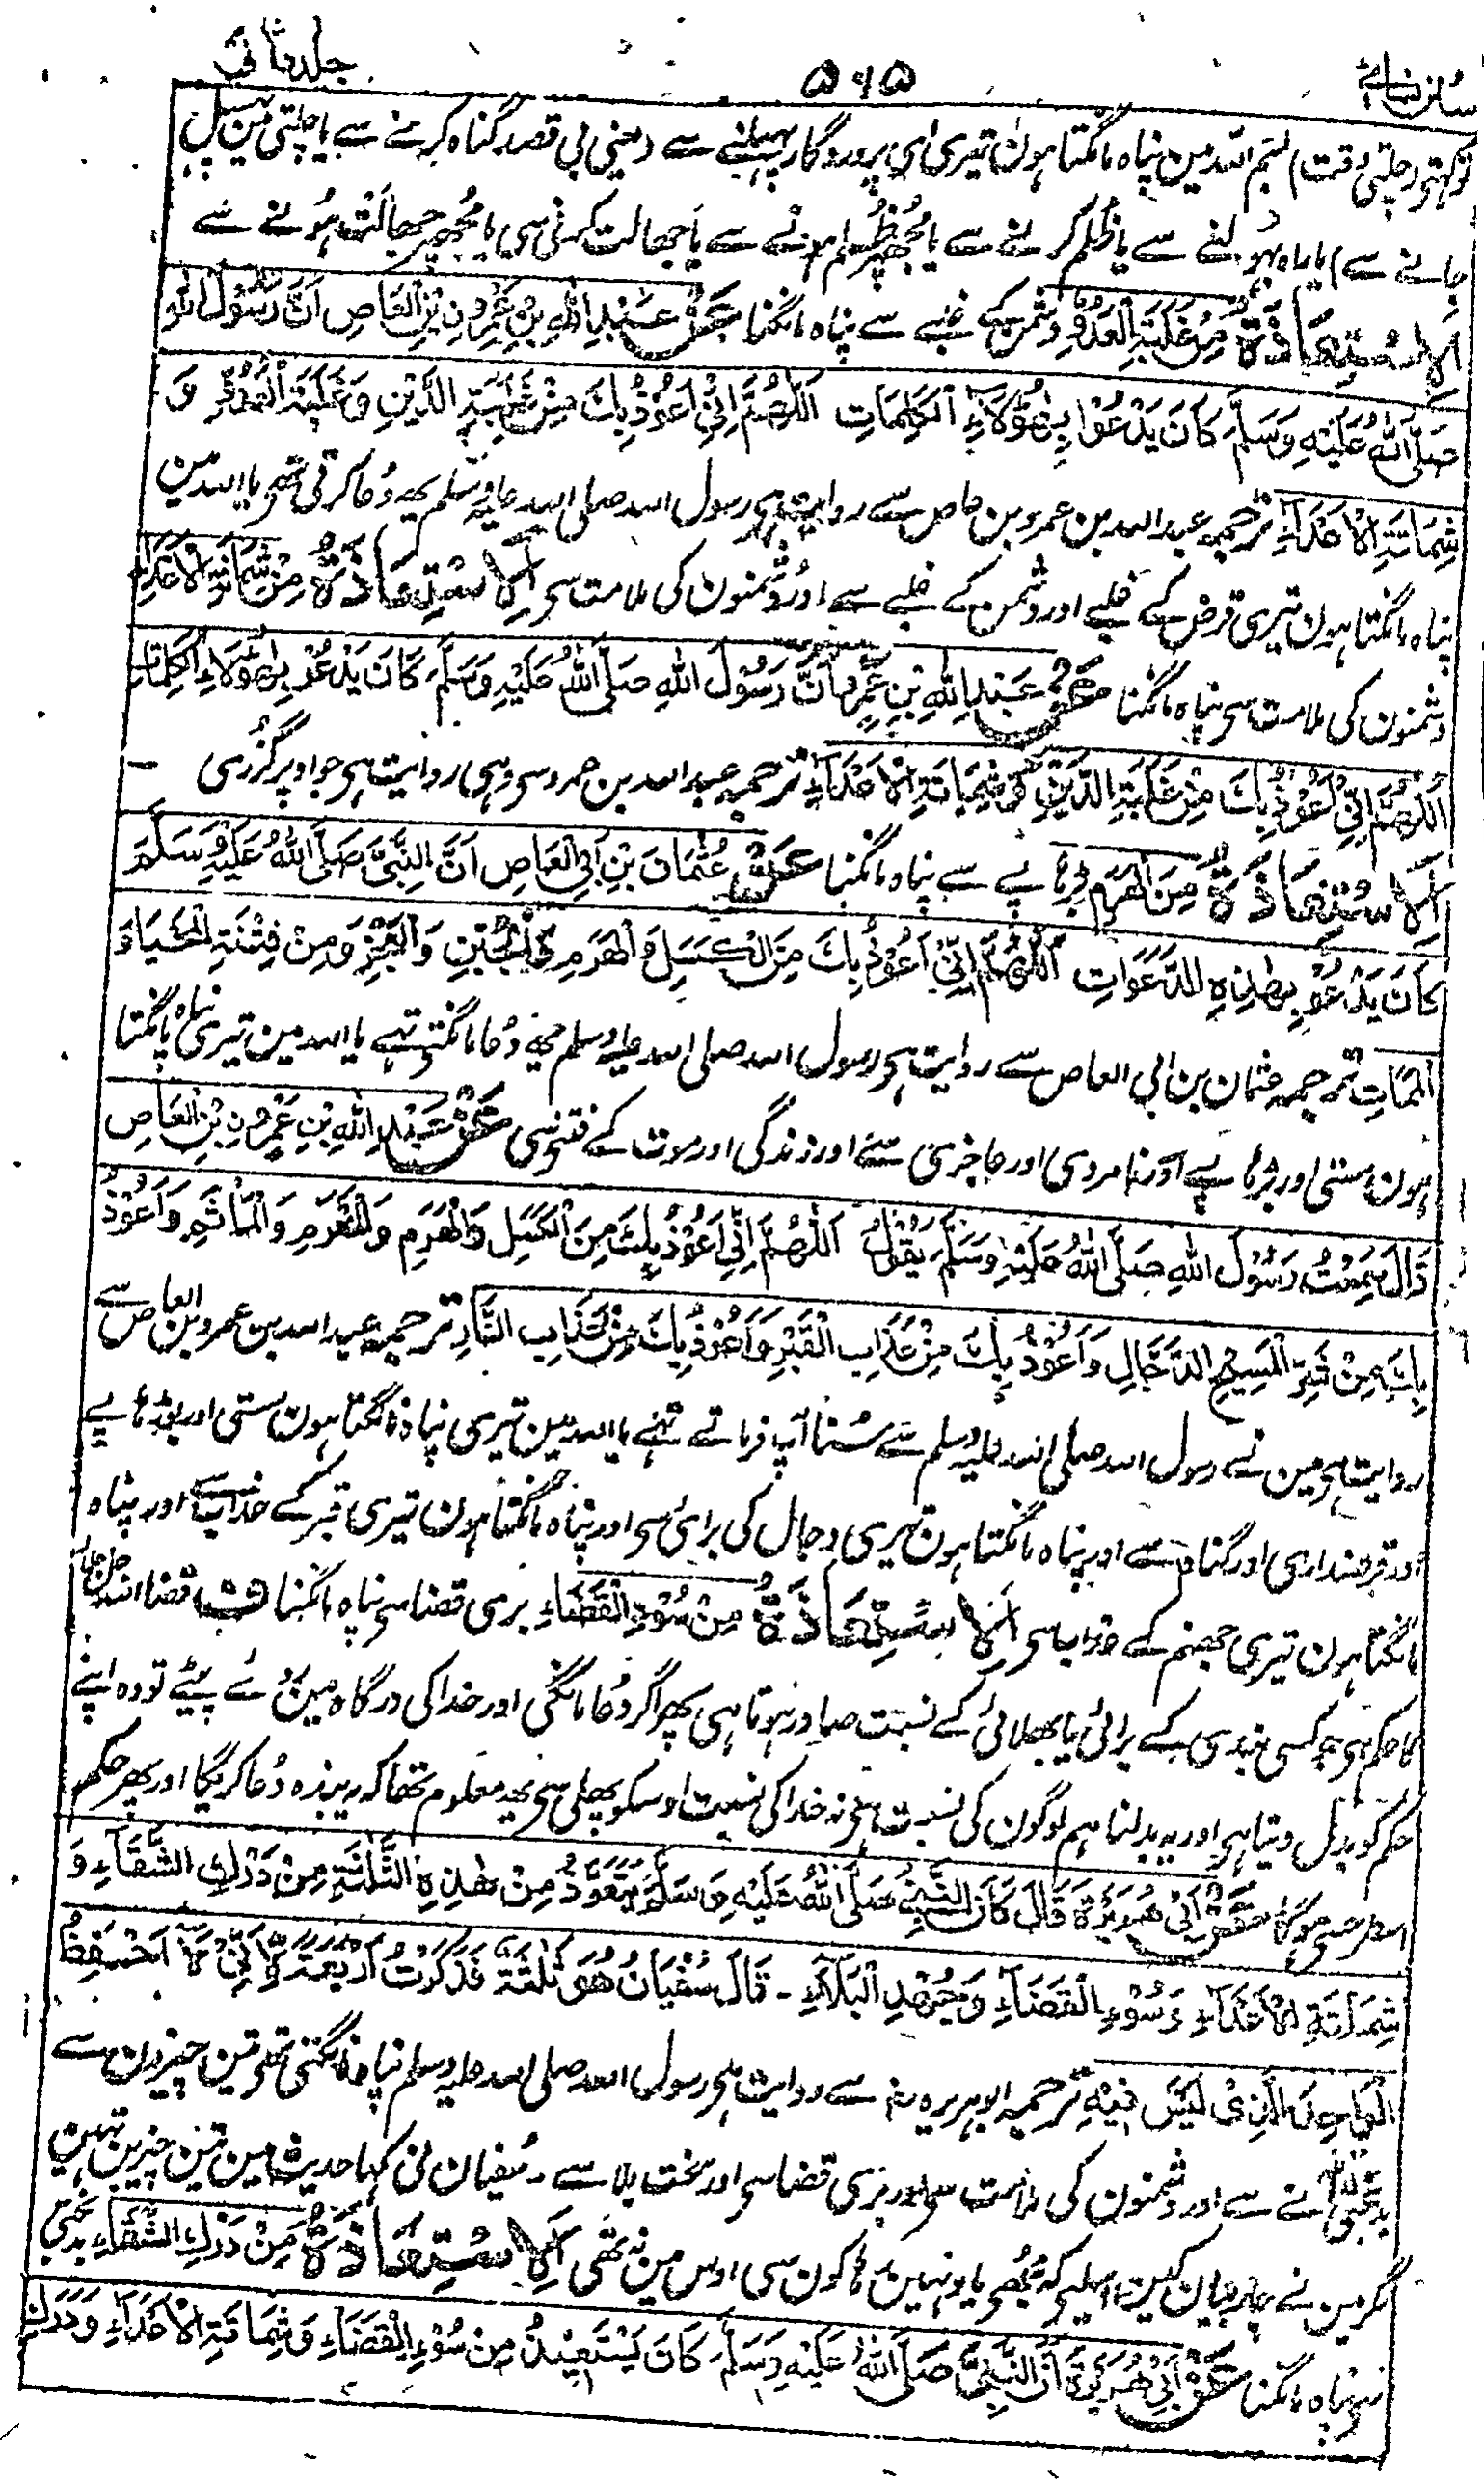 سنن نسائے ۵۶۵ جلد ثانی
تو کہتے (چلتی وقت) بسم اللہ مین پناہ مانگتا ہون تیری ای پروردگار پھسلنے سے (یعنی بی قصد گناہ کرنے سے یا چلتی مین پھسل
جانے سے) یا راہ بھولنے سے یا ظلم کرنے سے یا مجھپر ظلم ہونے سے یا جھالت کرنی سی یا مجھپر جھالت ہونے سے
اَلْاِسْتِعَاذَةُ مِنْ غَلَبَةِ الْعَدُوِّ دشمن کے غلبے سے پناہ مانگنا عَنْ عَبْدِ اللهِ بْنِ عَمْرِو بْنِ الْعَاصِ اَنَّ رَسُوْلَ اللهِ
صَلَّى اللهُ عَلَيْهِ وَسَلَّمَ كَانَ يَدْعُوْا بِهٰؤُلَاۤءِ الْكَلِمَاتِ اَللّٰهُمَّ اِنِّيْ اَعُوْذُ بِكَ مِنْ غَلَبَةِ الدَّيْنِ وَغَلَبَةِ الْعَدُوِّ وَ
شَمَاتَةِ الْاَعْدَاۤءِ ترجمہ عبد اللہ بن عمرو بن عاص سے روایت ہی رسول اللہ صلی اللہ علیہ وسلم یہہ دُعا کرتی تھی یا اللہ مین
پناہ مانگتا ہون تیری قرض کے غلبے اور دشمن کے غلبے سے اور دشمنون کی ملامت سی اَلْاِسْتِعَاذَةُ مِنْ شَمَاتَةِ الْاَعْدَاۤءِ
دشمنون کی ملامت سی پناہ مانگنا عَنْ عَبْدِ اللهِ بْنِ عَمْرٍو اَنَّ رَسُوْلَ اللهِ صَلَّى اللهُ عَلَيْهِ وَسَلَّمَ كَانَ يَدْعُوْ بِهٰؤُلَاۤءِ الْكَلِمَاتِ
اَللّٰهُمَّ اِنِّيْ اَعُوْذُ بِكَ مِنْ غَلَبَةِ الدَّيْنِ وَشَمَاتَةِ الْاَعْدَاۤءِ ترجمہ عبد اللہ بن عمرو سی وہی روایت ہی جو اوپر گزری -
اَلْاِسْتِعَاذَةُ مِنَ الْهَرَمِ بڑھاپے سے پناہ مانگنا عَنْ عُثْمَانَ بْنِ اَبِي الْعَاصِ اَنَّ النَّبِيَّ صَلَّى اللهُ عَلَيْهِ وَسَلَّمَ
كَانَ يَدْعُوْ بِهٰذِهِ الدَّعَوَاتِ اَللّٰهُمَّ اِنِّيْ اَعُوْذُ بِكَ مِنَ الْكَسَلِ وَالْهَرَمِ وَالْجُبْنِ وَالْعَجْزِ وَمِنْ فِتْنَةِ الْمَحْيَا وَ
الْمَمَاتِ ترجمہ عثمان بن ابی العاص سے روایت ہی رسول اللہ صلی اللہ علیہ وسلم یہہ دُعا مانگتے تھے یا اللہ مین تیری پناہ مانگتا
ہون سستی اور بڑھاپے اور نامردی اور عاجزی سے اور زندگی اور موت کے فتنے سی عَنْ عَبْدِ اللهِ بْنِ عَمْرِو بْنِ الْعَاصِ
قَالَ سَمِعْتُ رَسُوْلَ اللهِ صَلَّى اللهُ عَلَيْهِ وَسَلَّمَ يَقُوْلُ اَللّٰهُمَّ اِنِّيْ اَعُوْذُ بِكَ مِنَ الْكَسَلِ وَالْهَرَمِ وَالْمَغْرَمِ وَالْمَاْثَمِ وَاَعُوْذُ
بِكَ مِنْ شَرِّ الْمَسِيْحِ الدَّجَّالِ وَاَعُوْذُ بِكَ مِنْ عَذَابِ الْقَبْرِ وَاَعُوْذُ بِكَ مِنْ عَذَابِ النَّارِ ترجمہ عبد اللہ بن عمرو بن العاص سے
روایت ہی مین نے رسول اللہ صلی اللہ علیہ وسلم سے سُنا آپ فرماتے تھے یا اللہ مین تیری پناہ مانگتا ہون سستی اور بوڑھاپے
اور قرضداری اور گناہ سے اور پناہ مانگتا ہون تیری دجال کی برائی سی اور پناہ مانگتا ہون تیری قبر کے عذاب سے اور پناہ
مانگتا ہون تیری جھنم کے عذاب سی اَلْاِسْتِعَاذَةُ مِنْ سُوْءِ الْقَضَاۤءِ بری قضا سی پناہ مانگنا ف قضا اللہ جل جلالہ
کا حکم ہی جو کسی بندی کے برائی یا بھلائی کے نسبت صادر ہوتا ہی پھر اگر دُعا مانگی اور خدا کی درگاہ مین روئے پیٹے تو وہ اپنے
حکم کو بدل دیتا ہی اور یہ بدلنا ہم لوگون کی نسبت ہی نہ خدا کی نسبت اوسکو پہلی سی یہہ معلوم تھا کہ یہ بندہ دُعا کریگا اور پھر حکم
اسطرحسی ہوگا عَنْ اَبِيْ هُرَيْرَةَ قَالَ كَانَ النَّبِيُّ صَلَّى اللهُ عَلَيْهِ وَسَلَّمَ يَتَعَوَّذُ مِنْ هٰذِهِ الثَّلٰثَةِ مِنْ دَرَكِ الشَّقَاۤءِ وَ
شَمَاتَةِ الْاَعْدَاۤءِ وَسُوْءِ الْقَضَاۤءِ وَجُهْدِ الْبَلَاۤءِ - قَالَ سُفْيَانُ هُوَ ثَلٰثَةٌ فَذَكَرْتُ اَرْبَعَةً لِاَنِّيْ لَاۤ اَحْفَظُ
الْوَاحِدَ الَّذِيْ لَيْسَ فِيْهِ ترجمہ ابو ہریرہ رضہ سے روایت ہی رسول اللہ صلی اللہ علیہ وسلم پناہ مانگتی تھی تین چیزون سے
بدبختی آنے سے اور دشمنون کی ملامت سی اور بری قضا سی اور سخت بلا سے - سفیان نی کہا حدیث مین تین چیزین تہین
مگر مین نے چار بیان کین اسلیے کہ مجھی یاد نہین رہا کون سی اوس مین نہ تھی اَلْاِسْتِعَاذَةُ مِنْ دَرَكِ الشَّقَاۤءِ بدبختی
سے پناہ مانگنا عَنْ اَبِيْ هُرَيْرَةَ اَنَّ النَّبِيَّ صَلَّى اللهُ عَلَيْهِ وَسَلَّمَ كَانَ يَسْتَعِيْذُ مِنْ سُوْءِ الْقَضَاۤءِ وَشَمَاتَةِ الْاَعْدَاۤءِ وَدَرَكِ